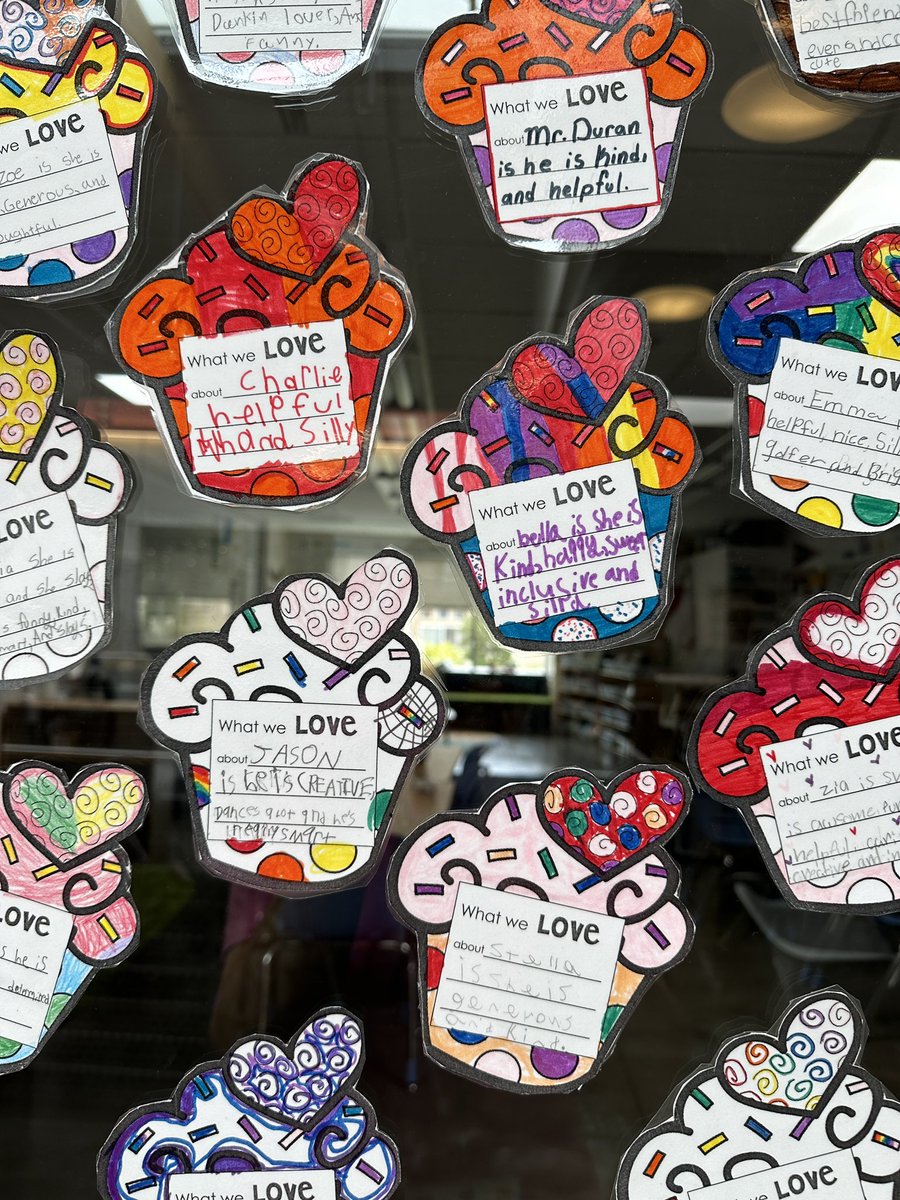 Dunkin lover, And
Funny.
bestfriend
ever and
cute
we LOVE
zoe is she is
Generous, and
What we LOVE
about Mr. Duran
is he is kind,
and helpful.
What we LOVE
about Charlie
helpful
and Silly
What we LOVE
about bella is she is
Kind, happy, sweet
inclusive and
What we
about Emma
helpful, nice, Sill
golfer and Brig
LOVE
she is
and she slay
funny, kind,
What we LOVE
about JASON
is he's CREATIVE
dances a lot and he's
What we LOVE
about zia is
is awesome,
helpful, calm,
creative and
LOVE
she is
determined
What we LOVE
about Stella
is she is
generous
and kind.
What we LOVE
What we LOVE